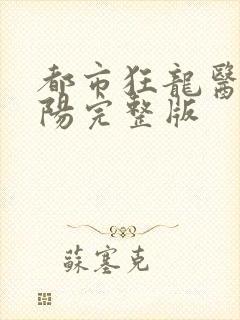 都市狂龍醫
陽完整版
蘇塞克